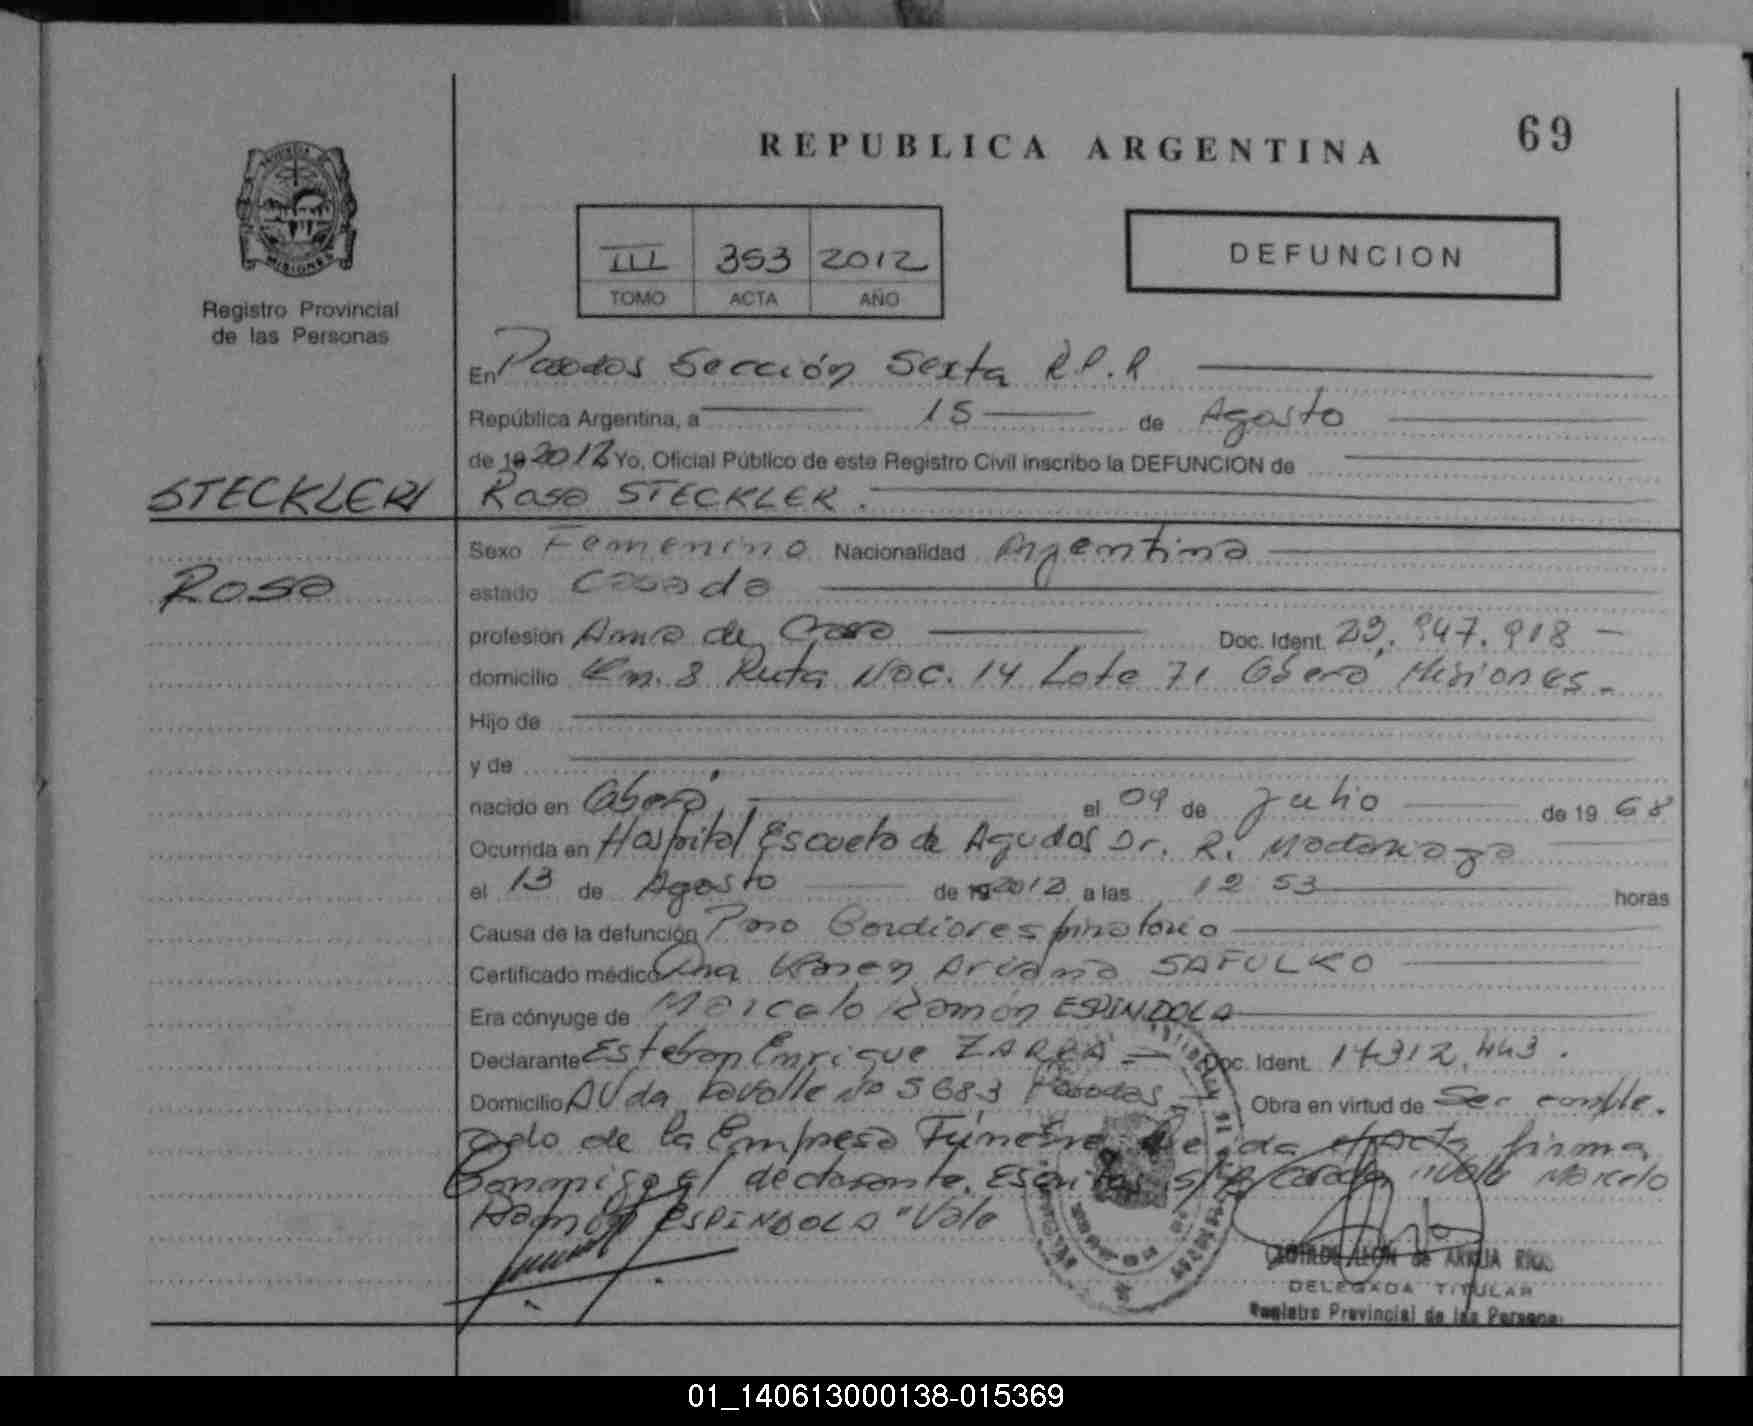 REPUBLICA ARGENTINA
69
PROVINCIA DE
MISIONES
Registro Provincial
de las Personas
III 353 2012
TOMO ACTA AÑO
DEFUNCION
En Posadas Sección Sexta R.P.P
República Argentina, a 15 de Agosto
de 19 2012 Yo, Oficial Público de este Registro Civil inscribo la DEFUNCION de
STECKLER Rosa STECKLER.
Sexo Femenino Nacionalidad Argentina
Rosa
estado Casada
profesión Ama de Casa Doc. Ident. 23.947.918
domicilio Km. 8 Ruta Nac. 14 Lote 71 Oberá Misiones.
Hijo de
y de
nacido en Oberá el 09 de Julio de 19 68
Ocurrida en Hospital Escuela de Agudos Dr. R. Madariaga
el 13 de Agosto de 19 2012 a las 12 53 horas
Causa de la defunción Paro Cardiorespiratorio
Certificado médico Ana Karen Ariana SAFULKO
Era cónyuge de Marcelo Ramón ESPINDOLA
Declarante Esteban Enrique ZARZA Doc. Ident. 14312.443.
Domicilio AVda Lavalle Nº 5683 Posadas Obra en virtud de Ser emple.
ado de la Empresa Fúnebre Leida firma
Conmigo el declarante. Escritas s/R Vale Marcelo
Ramón ESPINDOLA "Vale
CLOTILDE LEON de ARRUA RIOS
DELEGADA TITULAR
Registro Provincial de las Personas
01_140613000138-015369